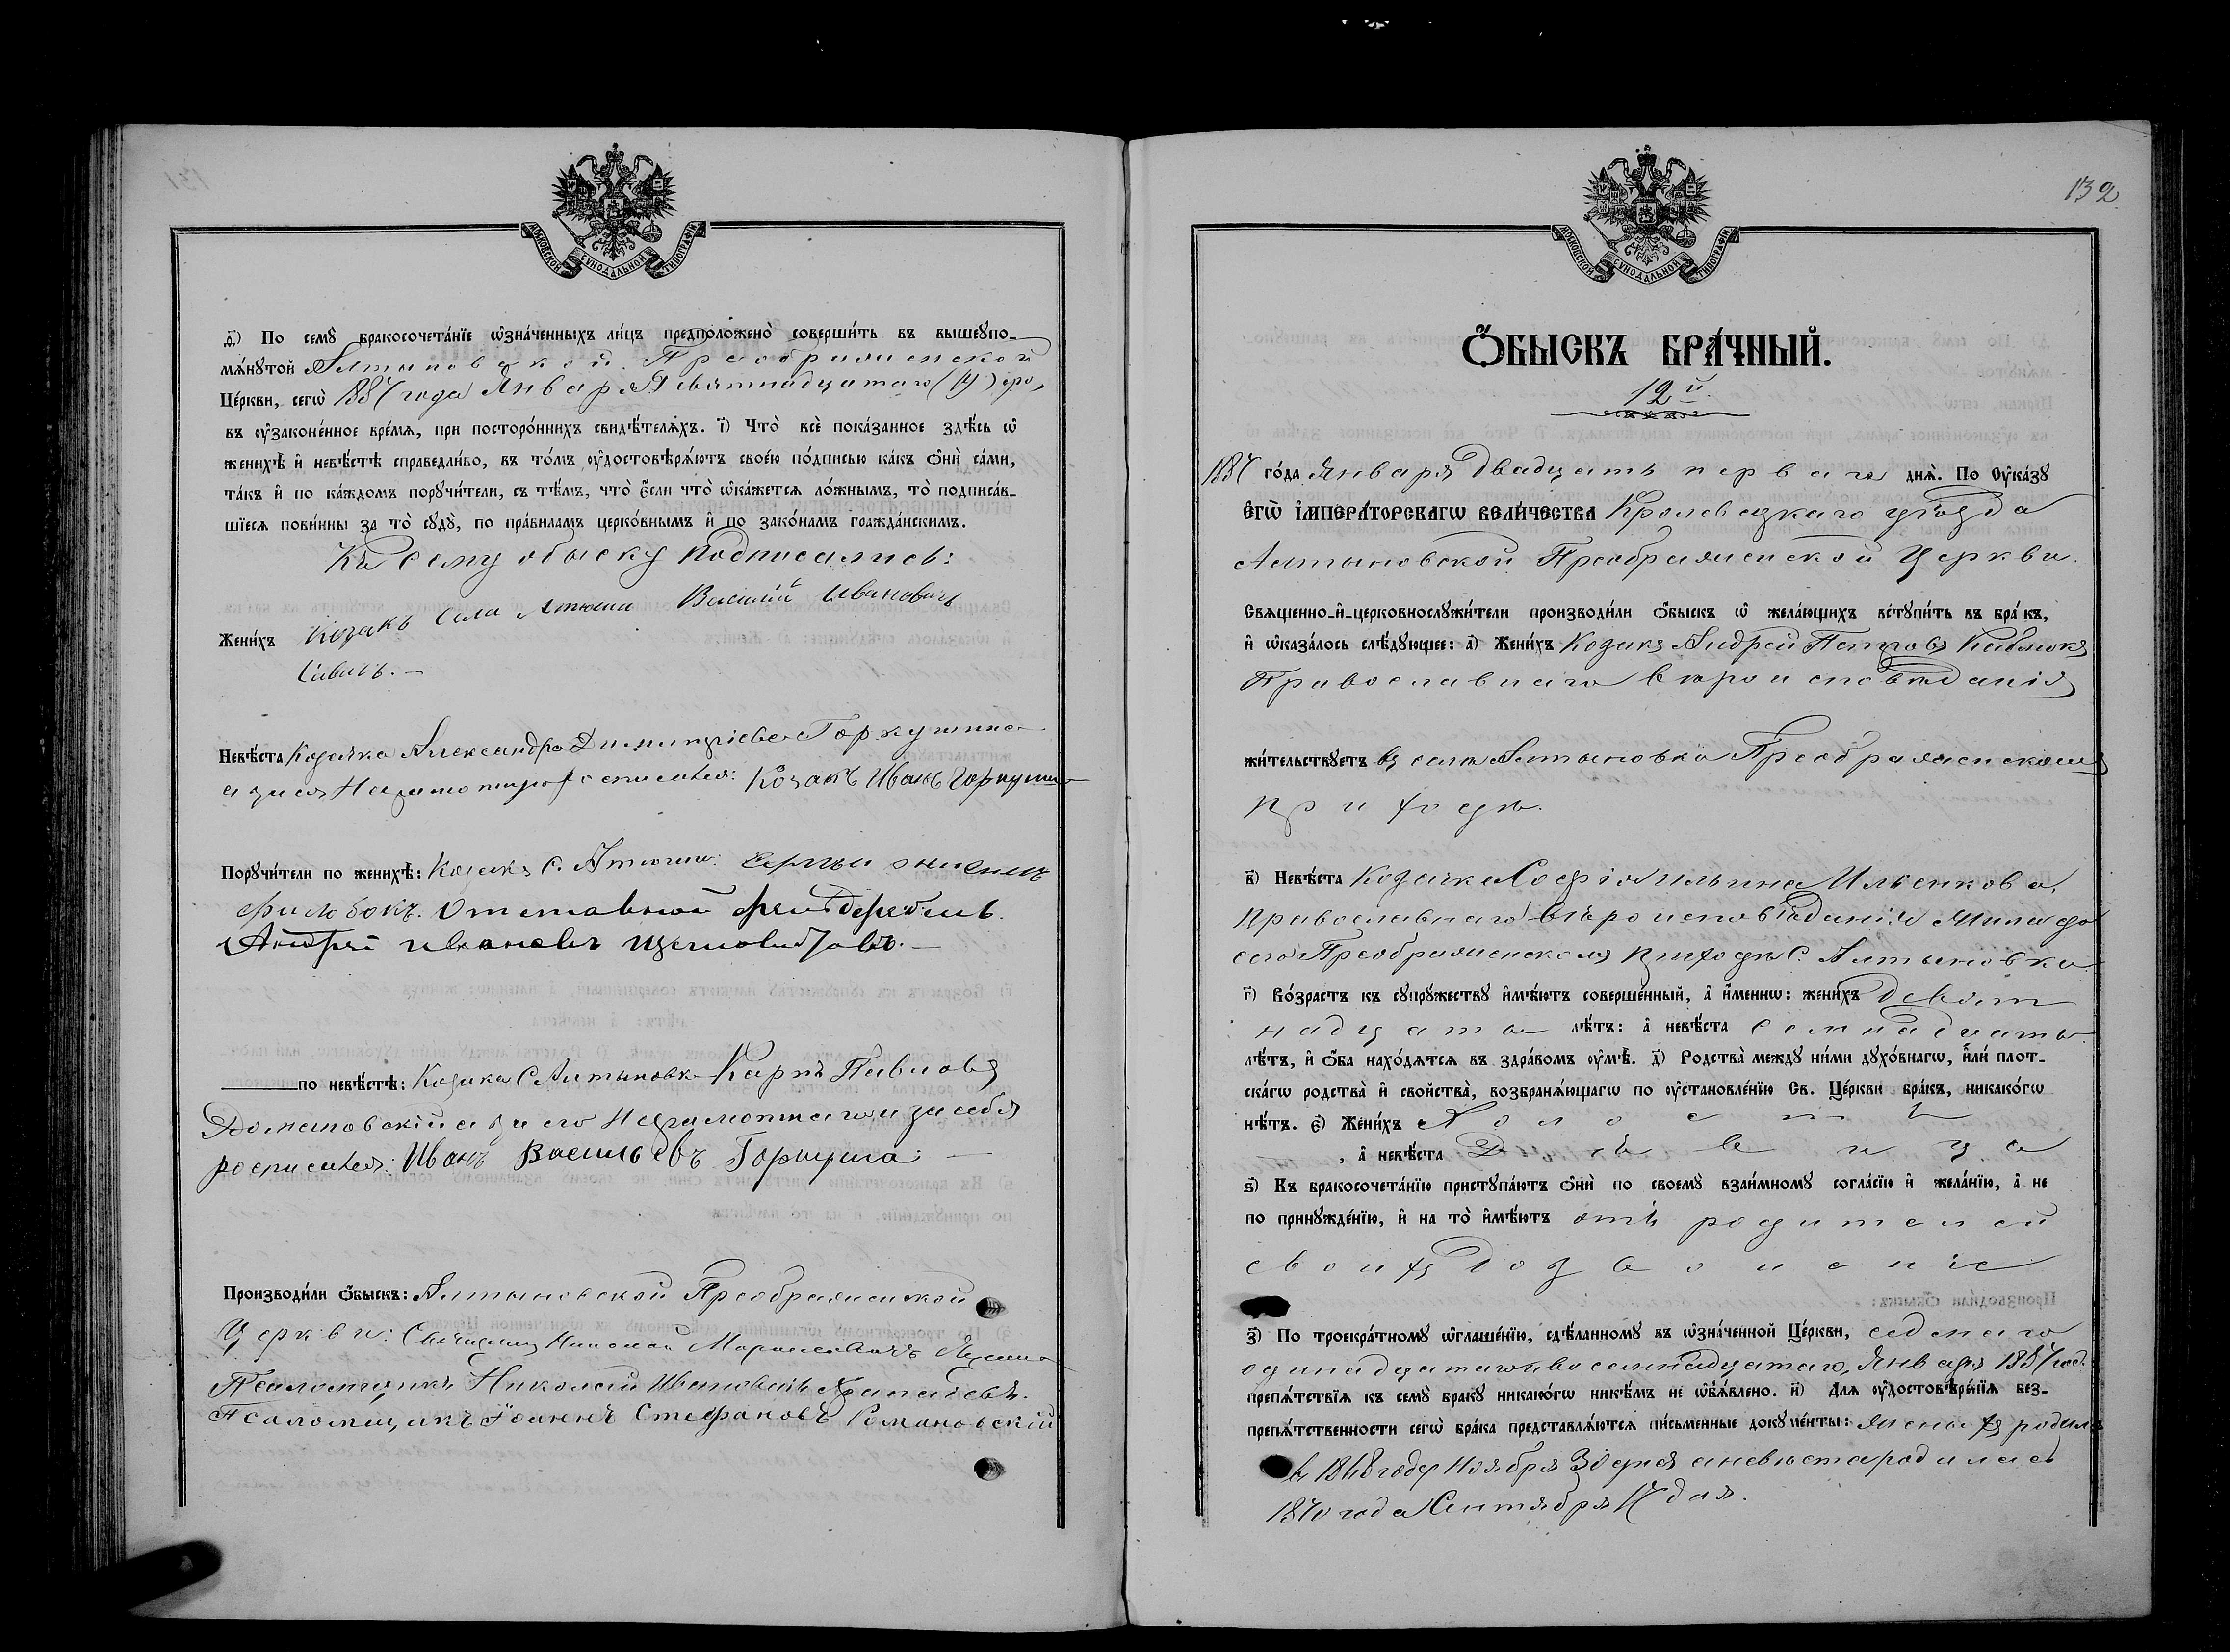 131
МОСКОВСКОЙ СѴНОДАЛЬНОЙ ТИПОГРАФІИ
д҃) По семꙋ̀ бракосочета́нїе ѡ҆зна́ченныхъ ли́цъ предположено̀ соверши́ть въ вышеꙋпо-
мѧ́нꙋтой Алтыновской Преображенской
Це́ркви, сегѡ̀ 1887 года Января Девятнадцатаго (19) его,
въ ᲂу҆законе́нное вре́мѧ, при посторо́ннихъ свидѣ́телѧхъ. і҃) Что̀ всѐ пока́занное здѣ́сь ѡ҆
женихѣ̀ и҆ невѣ́стѣ справедли́во, въ то́мъ ᲂу҆достовѣрѧ́ютъ свое́ю по́дписью ка́къ ѻ҆нѝ са́ми,
та́къ и҆ по ка́ждомъ порꙋчи́тели, съ тѣ́мъ, что̀ є҆́сли что̀ ѡ҆ка́жетсѧ ло́жнымъ, то̀ подписа́в-
шїесѧ пови́нны за то̀ сꙋдꙋ̀, по пра́виламъ церко́внымъ и҆ по зако́намъ гражда́нскимъ.
Къ сему обыску подписались:
Жени́хъ Козакъ села Атюши Василій Ивановичъ
Сивикъ. —
Невѣ́ста Козачка Александра Димитріева Горкушина
а за ея Неграмотную росписался: Козакъ Иванъ Горкуша
Порꙋчи́тели по женихѣ̀: Козакъ С. Атюши:
Отставной фельдфебель.
Андрей Ивановъ
по невѣ́стѣ: Козаки С Алтыновки Карпъ Павловъ
Домановскій а за его Неграмотнаго и за себя
росписался: Иванъ Васильевъ Горкуша —
Производи́ли ѻ҆́быскъ: Алтыновской Преображенской
Церкви: Священникъ Николай
Псаломщикъ Николай Ивановичъ
Псаломщикъ Іоаннъ Стефановъ Романовскій
132
МОСКОВСКОЙ СѴНОДАЛЬНОЙ ТИПОГРАФІИ
Ѻ҆́БЫСКЪ БРА́ЧНЫЙ.
12й.
1887 го́да Января Двадцать перваго днѧ̀. По Оу҆ка́зꙋ
Є҆ГѠ̀ І҆МПЕРА́ТОРСКАГѠ ВЕЛИ́ЧЕСТВА Кролевецкаго уѣзда
Алтыновской Преображенской Церкви.
Свѧщенно-и҆-церковнослꙋжи́тели производи́ли ѻ҆́быскъ ѡ҆ жела́ющихъ встꙋпи́ть въ бра́къ,
и҆ ѡ҆каза́лось слѣ́дꙋющее: а҃) Жени́хъ Козакъ Андрей Петровъ
Православнаго вѣроисповѣданія
жи́тельствꙋетъ въ селѣ Алтыновкѣ Преображенскомъ
приходѣ.
в҃) Невѣ́ста Козачка Софія Ильина Ильенкова,
Православнаго вѣроисповѣданія Жила до
сего Преображенскомъ приходѣ С. Алтыновки
г҃) Во́зрастъ къ сꙋпрꙋ́жествꙋ и҆мѣ́ютъ соверше́нный, а҆ и҆́меннѡ: жени́хъ Девят
надцать лѣ́тъ: а҆ невѣ́ста семнадцать
лѣ́тъ, и҆ ѻ҆́ба нахо́дѧтсѧ въ здра́вомъ ᲂу҆мѣ̀. д҃) Родства̀ междꙋ ни́ми дꙋхо́внагѡ, и҆лѝ плот-
ска́гѡ родства̀ и҆ свойства̀, возбранѧ́ющагѡ по ᲂу҆становле́нїю Св. Це́ркви бра́къ, никако́гѡ
нѣ́тъ. є҃) Жени́хъ Холостъ
, а҆ невѣ́ста Дѣвица
ѕ҃) Къ бракосочета́нїю пристꙋпа́ютъ ѻ҆нѝ по своемꙋ̀ взаи́мномꙋ согла́сїю и҆ жела́нїю, а҆ не
по принꙋжде́нїю, и҆ на то̀ и҆мѣ́ютъ отъ родителей
своихъ дозволеніе
з҃) По троекра́тномꙋ ѡ҆глаше́нїю, сдѣ́ланномꙋ въ ѡ҆зна́ченной Це́ркви, седмаго
одинадцатаго и восемнадцатаго, Января 1887 год.
препѧ́тствїѧ къ семꙋ̀ бра́кꙋ никако́гѡ никѣ́мъ не ѡ҆б̾ѧ́влено. и҃) Длѧ ᲂу҆достовѣре́нїѧ без-
препѧ́тственности сегѡ̀ бра́ка представлѧ́ютсѧ пи́сьменные докꙋме́нты: Женихъ родилъ
въ 1868 году Ноября 30 дня а невѣста родилась
1870 года Сентября 17 дня.